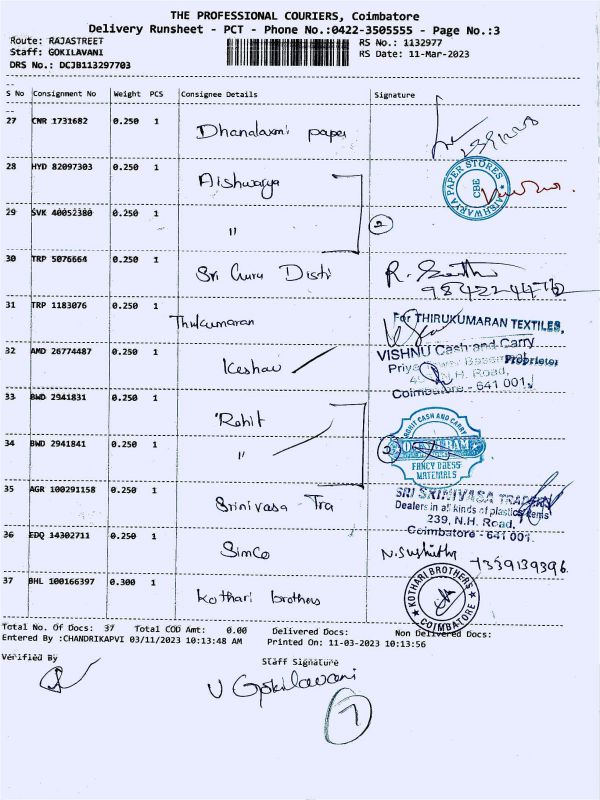 THE PROFESSIONAL COURIERS, Coimbatore
Delivery Runsheet - PCT - Phone No.:0422-3505555 - Page No.:3
Route: RAJASTREET RS No.: 1132977
Staff: GOKILAVANI RS Date: 11-Mar-2023
DRS No.: DCJB113297703
S No Consignment No Weight PCS Consignee Details Signature
27 CNR 1731682 0.250 1 Dhanalaxmi paper
28 HYD 82097303 0.250 1 Aishwarya
AISHWARYA PAPER STORES CBE
29 SVK 40052380 0.250 1 " 2
30 TRP 5076664 0.250 1 Sri Guru Disti
31 TRP 1183076 0.250 1 Thirukumaran
For THIRUKUMARAN TEXTILES,
Proprietor
32 AMD 26774487 0.250 1 Keshav
VISHNU Cash and Carry
N.H. Road,
Coimbatore - 641 001.
33 BWD 2941831 0.250 1 Rohit
34 BWD 2941841 0.250 1 " 2
ROHIT CASH AND CARRY
FANCY DRESS
MATERIALS
35 AGR 100291158 0.250 1 Srinivasa Tra
SRI SRINIVASA TRADERS
Dealers in all kinds of plastics items
239, N.H. Road,
Coimbatore - 641 001.
36 EDQ 14302711 0.250 1 Simco
37 BHL 100166397 0.300 1 Kothari brothers
KOTHARI BROTHERS COIMBATORE
Total No. Of Docs: 37 Total COD Amt: 0.00 Delivered Docs: Non Delivered Docs:
Entered By :CHANDRIKAPVI 03/11/2023 10:13:48 AM Printed On: 11-03-2023 10:13:56
Verified By Staff Signature
V Gokilavani
7